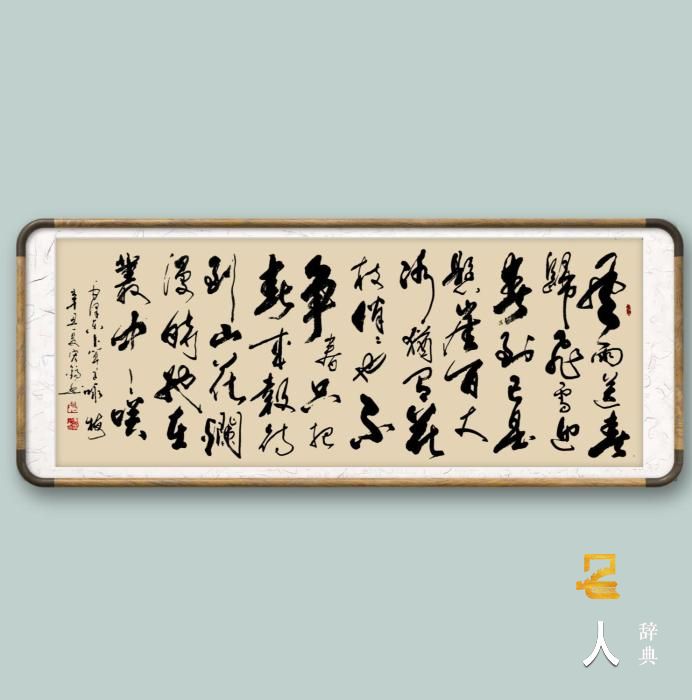 風雨送春
歸飛雪迎
春到已是
懸崖百丈
冰猶有花
枝俏丶也不
争春只把
春来報待
到山花爛
漫時她在
叢中丶笑
毛澤東卜算子咏梅
辛丑夏
名人
辞典